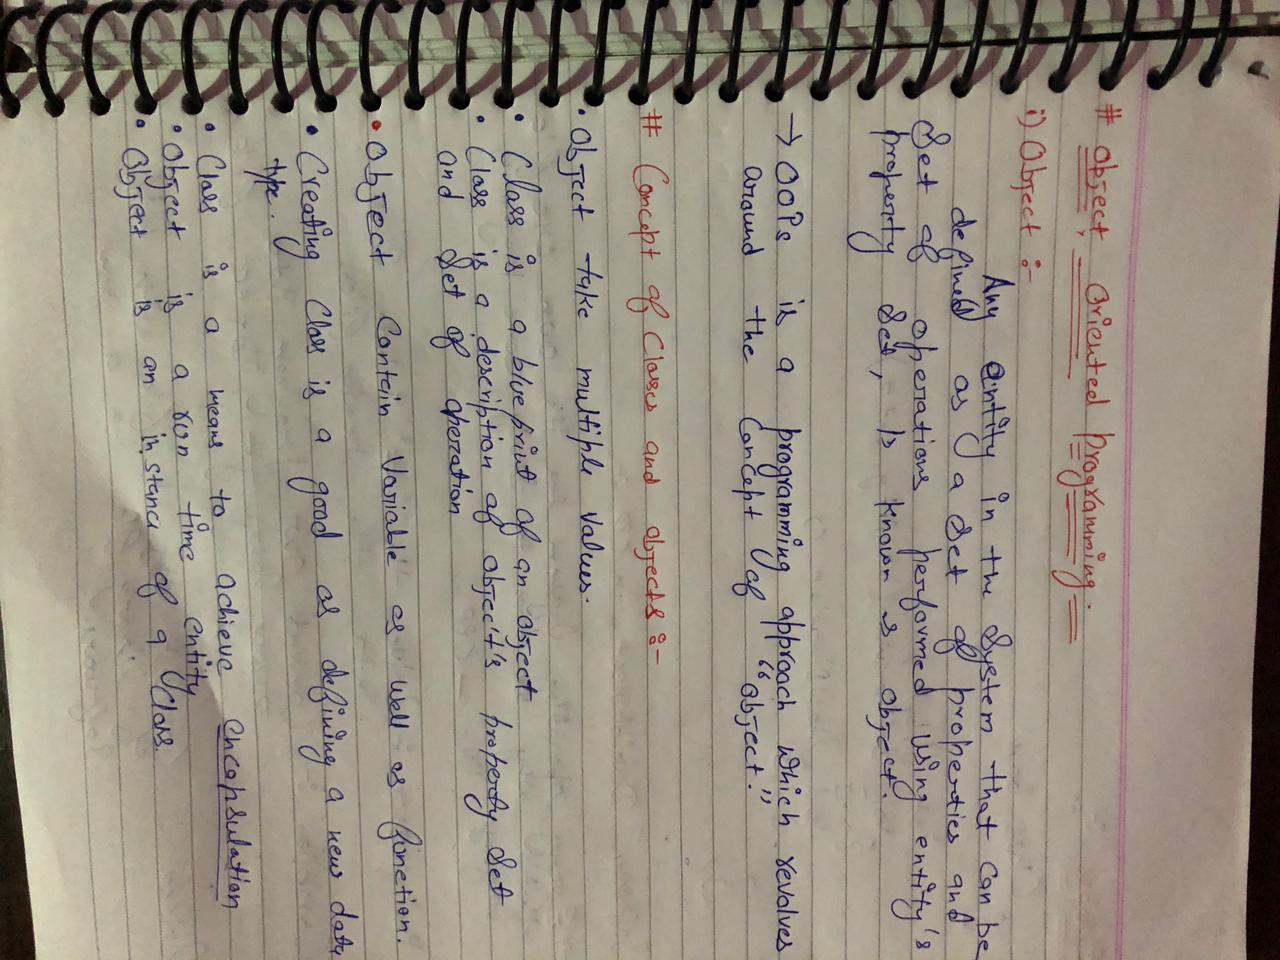 # Object, Oriented Programming.
i) Object :-
Any entity in the System that can be
defined as a Set of properties and
Set of operations performed using entity's
property Set, is known is object.
→ OOPs is a programming approach which revolves
around the Concept of "object."
# Concept of Classes and objects :-
• Object take multiple values.
• Class is a blue print of an object
• Class is a description of object's property set
and set of operation
• Object Contain Variable as well as function.
• Creating Class is a good as defining a new data
type.
• Class is a means to achieve encapsulation
• Object is a run time entity
• Object is an instance of a Class.